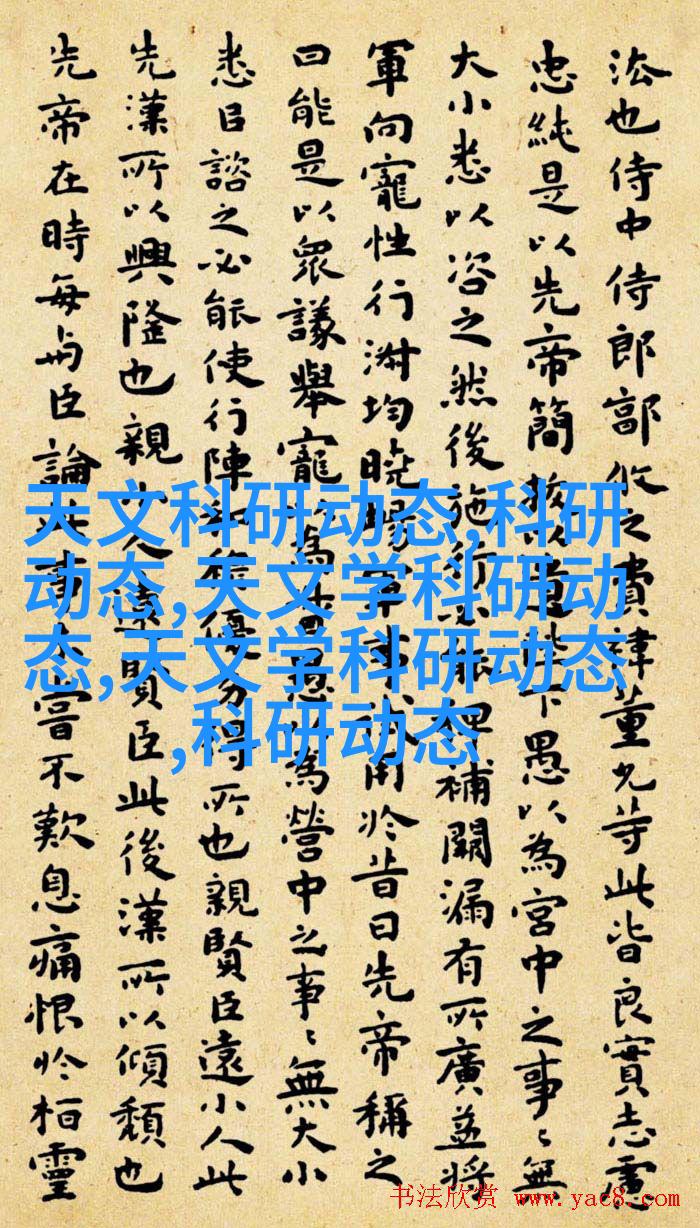 法也侍中侍郎郭攸之費禕董允等此皆良實志慮
忠純是以先帝簡拔以遺陛下愚以為宮中之事〻無
大小悉以咨之然後施行必能裨補闕漏有所廣益將
軍向寵性行淋均曉暢軍事試用於昔日先帝稱之
曰能是以眾議舉寵以為督愚以為營中之事〻無大小
悉以諮之必能使行陣和穆優劣得所也親賢臣遠小人此
先漢所以興隆也親小人遠賢臣此後漢所以傾頹也
先帝在時每與臣論此事未嘗不歎息痛恨於桓靈
天文科研动态,科研
动态,天文学科研动
态,天文学科研动态
,科研动态
书法欣赏 www.yac8.com